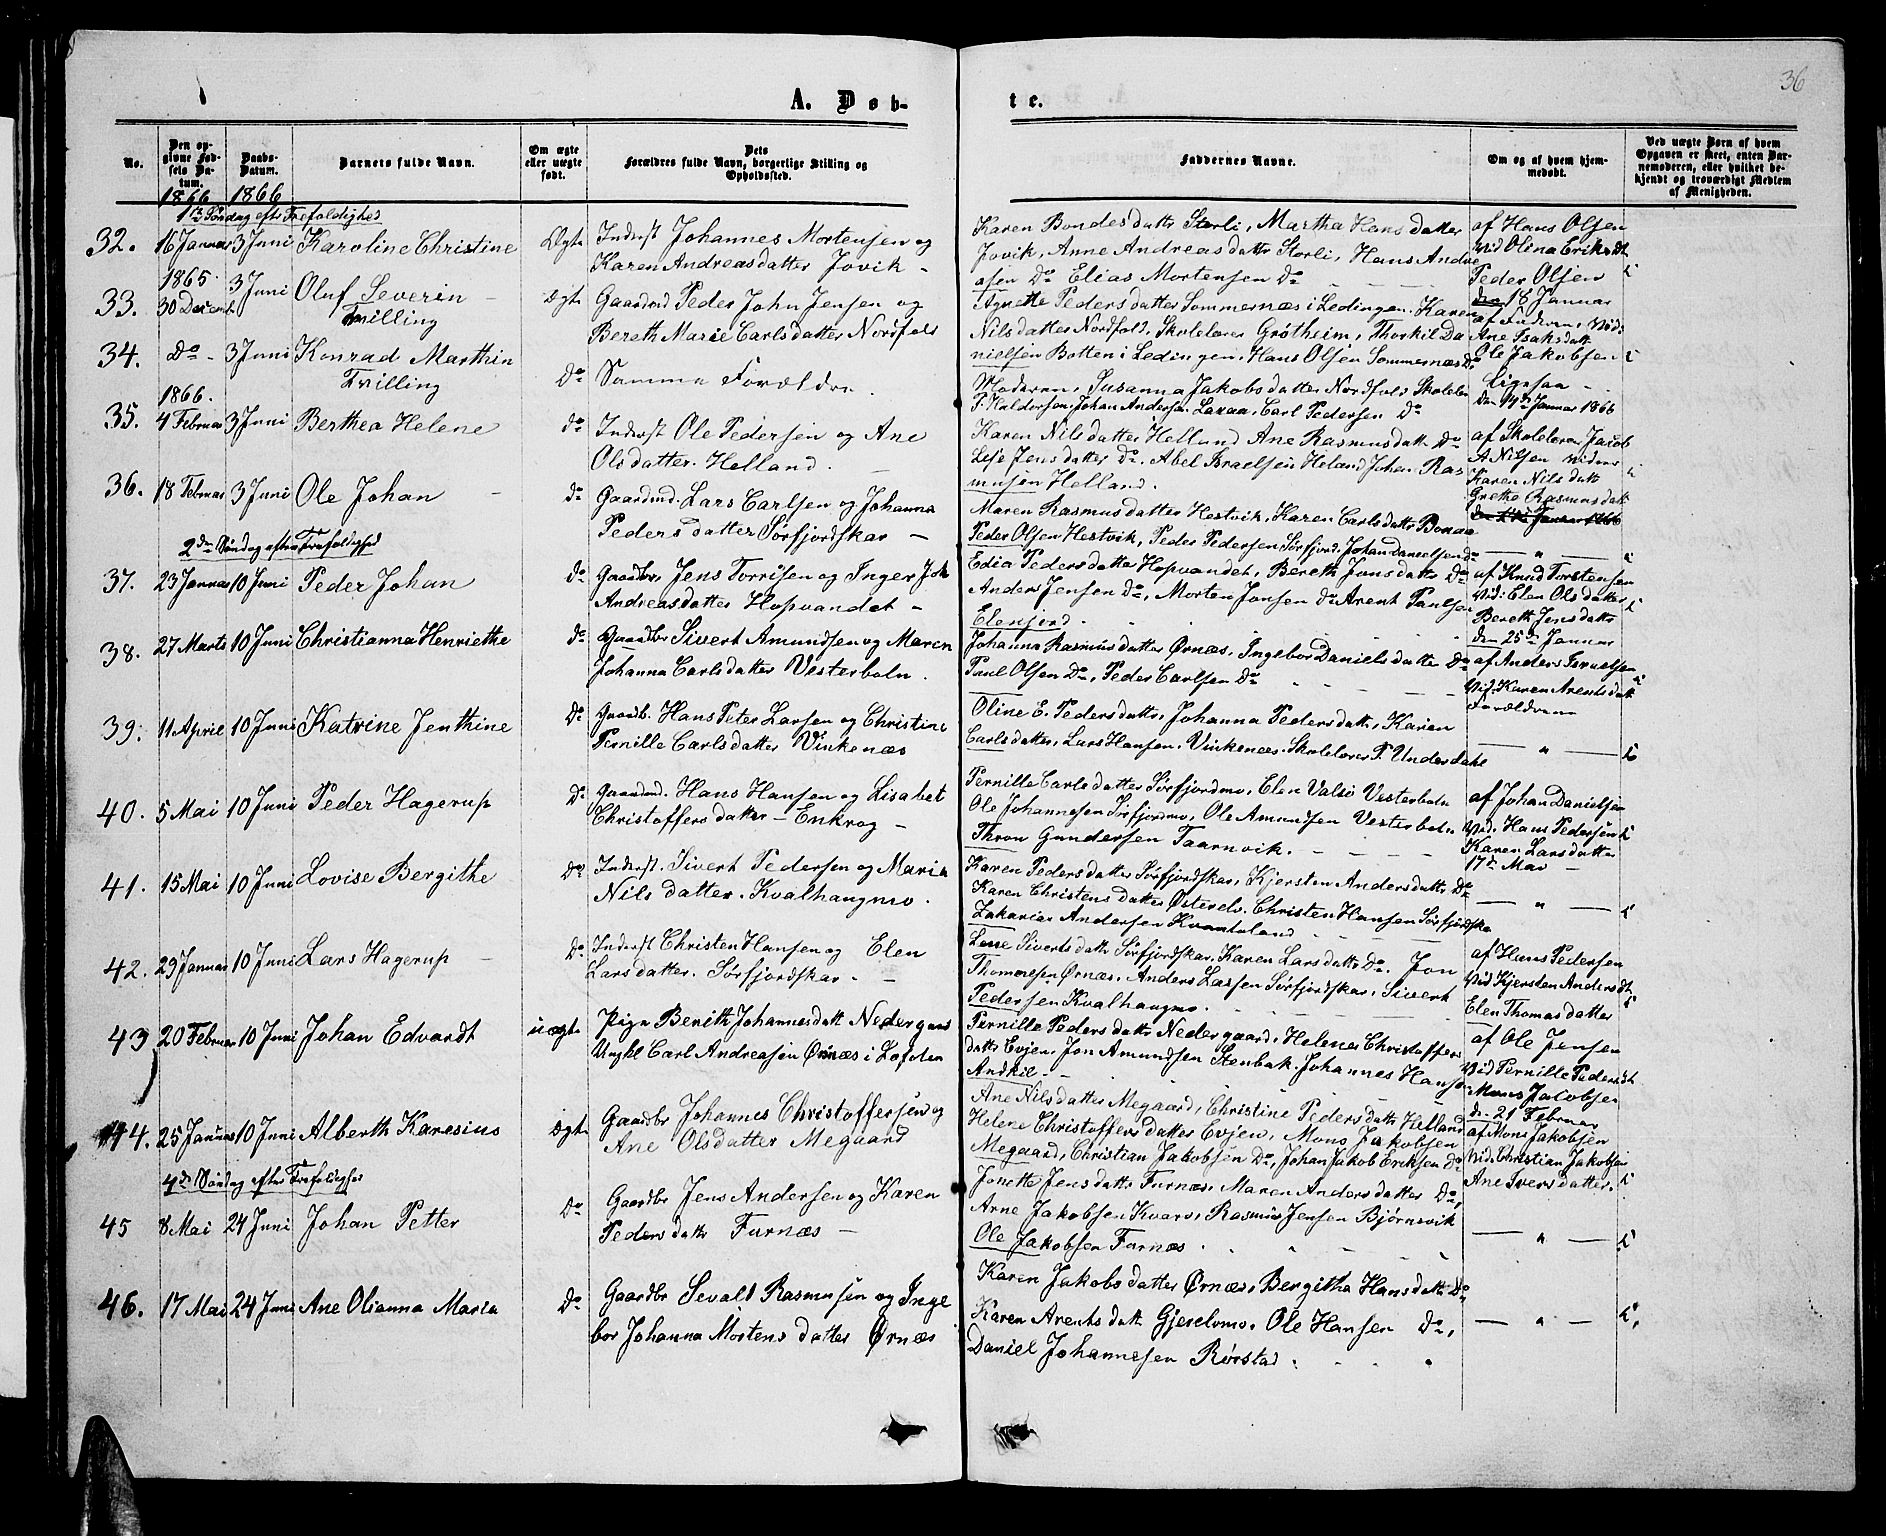 36
A. Døb-
te.
No.
Den op-
givne Fød-
sels Da-
tum.
Daabs-
Datum.
Barnets fulde Navn.
Om ægte
eller uægte
født.
Dets
Forældres fulde Navn, borgerlige Stilling og
Opholdssted.
Faddernes Navne.
Om og af hvem hjem-
medøbt.
Ved uægte Børn af hvem
Opgaven er skeet, enten Bar-
nemoderen, eller hvilket be-
kjendt og troværdigt Medlem
af Menigheden.
1866 1866
1ste Søndag efter Trefoldighed
32. 16 Januar 3 Juni Karoline Christine Ægte Inderst Johannes Mortensen og
Karen Andreasdatter Jovik -
Karen Bondesdatter Storli, Martha Hansdatter
Jovik, Anne Andreasdatter Storli, Hans Andre
asen Do Elias Mortensen Do
af Hans Olsen
vid Olina Eriksdt
Peder Olsen
den 18 Januar
1865
33. 30 Decemb 3 Juni Oluf Severin - Ægte Gaardmd Peder John Jensen og
Tvilling
Bereth Marie Carlsdatter Nordfold
Agnette Pedersdatter Sommernæs i Ledingen, Karen
Nilsdatter Nordfold, Skolelærer Grøtheim, Thorkil Da
nielsen Botten i Ledingen, Hans Olsen Sommernæs Do
af Faderen, vid:
Ane Isaksdatt
Ole Jakobsen
34. Do - 3 Juni Konrad Marthin Do Samme Forældre
Tvilling
Moderen, Susanna Jakobsdatter Nordfold Skolelær
P. Haldorsen, Johan Andersen Laxaa, Carl Pedersen Do
Ligesaa -
Den 14de Januar 1866
1866.
35. 4 Februar 3 Juni Berthea Helene Do Inderst Ole Pedersen og Ane
Olsdatter. Helland.
Karen Nilsdatter Helland Ane Rasmusdatt Do
Lise Jensdatter Do. Abel Israelsen Heland Johan Ras
musen Helland.
af Skolelærer Jacob
A Nilsen vidner
Karen Nilsdatt
Grethe Rasmusdatt
36. 18 Februar 3 Juni Ole Johan - Do Gaardmd. Lars Carlsen og Johanna
Pedersdatter Sørfjordskar -
Maren Rasmusdatter Hestvik, Karen Carlsdatter Bonaa
Peder Olsen Hestvik, Peder Pedersen Sørfjord, Johan Danielsen Do
2den Søndag efter Trefoldighed
37. 23 Januar 10 Juni Peder Johan Do Gaardbr Jens Torrisen og Inger Joh
Andreasdatter Hopvandet -
Edia Pedersdatter Hopvandet, Bereth Jensdatter Do
Anders Jensen Do, Morten Jonsen Do Arent Paulsen
Elenjord.
af Knud Torstensen
Vid: Elen Olsdatter
Bereth Jensdatter
den 25de Januar
38. 27 Marts 10 Juni Christianna Henriethe Do Gaardbr Sivert Amundsen og Maren
Johanna Carlsdatter Vesterbotn.
Johanna Rasmusdatter Ørnæs, Ingebor Danielsdatter Do
Paul Olsen Do, Peder Carlsen Do
af Anders Israelsen
Vid. Karen Arentsdatt
Forældrene
39. 11 April 10 Juni Katrine Jenthine Do Gaardb. Hans Peter Larsen og Christine
Pernille Carlsdatter Vinkenæs
Oline E. Pedersdatter, Johanna Pedersdatter, Karen
Carlsdatter, Lars Hansen, Vinkenæs. Skolelærer P. Underdahl
40. 5 Mai 10 Juni Peder Hagerup Do Gaardmd. Hans Hansen og Lisabet
Christoffersdatter - Enkrog -
Pernille Carlsdatter Sørfjordmo, Elen Valsø Vesterbotn
Ole Johannesen Sørfjordmo, Ole Amundsen Vesterbotn
Thron Gundersen Taarnvik.
af Johan Danielsen
Vid: Hans Pedersen
Karen Larsdatter
17de Mai -
41. 15 Mai 10 Juni Lovise Bergithe Do Inderst. Sivert Pedersen og Maria
Nilsdatter. Kvalhaugmo.
Karen Pedersdatter Sørfjordskar, Kjersten Andersdatter Do
Karen Christensdatter Østerelv. Christen Hansen Sørfjordska
Zakarias Andersen Kvantoland
42. 29 Januar 10 Juni Lars Hagerup - Do Inderst Christen Hansen og Elen
Larsdatter. Sørfjordskar -
Lene Sivertsdatter Sørfjordskar, Karen Larsdatter Do. Jon
Thommesen Ørnæs, Anders Larsen Sørfjordskar, Sivert
Pedersen Kvalhaugmo.
af Hans Pedersen
Vid Kjersten Andersdt
Elen Thomasdatter
43 20 Februar 10 Juni Johan Edvardt uægte Pige Berith Johannesdatt Nedergaard
Unghl Carl Andreasen Ørnæs i Lofoten
Pernille Pedersdatter Nedergaard, Helene Christoffers
datter Evjen, Jon Amundsen Stenbak. Johannes Hansen
Andkil.
af Ole Jensen
Vid Pernille Pedersdt
Mons Jakobsen
dn 21 Februar
44. 25 Januar 10 Juni Alberth Karesius Ægte Gaardbr Johannes Christoffersen og
Ane Olsdatter Megaard
Ane Nilsdatter Megaard, Christine Pedersdatter Helland
Helene Christoffersdatter Evjen, Mons Jakobsen
Megaard, Christian Jakobsen Do, Johan Jakob Eriksen Do
af Mons Jakobsen
Vid. Christian Jakobsen
Ane Iversdatter.
4de Søndag efter Trefoldighed
45 8 Mai 24 Juni Johan Petter Do Gaardbr Jens Andersen og Karen
Pedersdatter Furnæs -
Jonette Jensdatter Furnæs, Maren Andersdatter Do,
Arne Jakobsen Kvarv, Rasmus Jensen Bjørnsvik
Ole Jakobsen Furnæs.
46. 17 Mai 24 Juni Ane Olianna Maria Do Gaardbr Sevald Rasmusen og Inge
bor Johanna Mortensdatter Ørnæs
Karen Jakobsdatter Ørnæs, Bergitha Hansdatter Do,
Karen Arentsdatt Gjerelvmo, Ole Hansen Do,
Daniel Johannesen Rørstad.